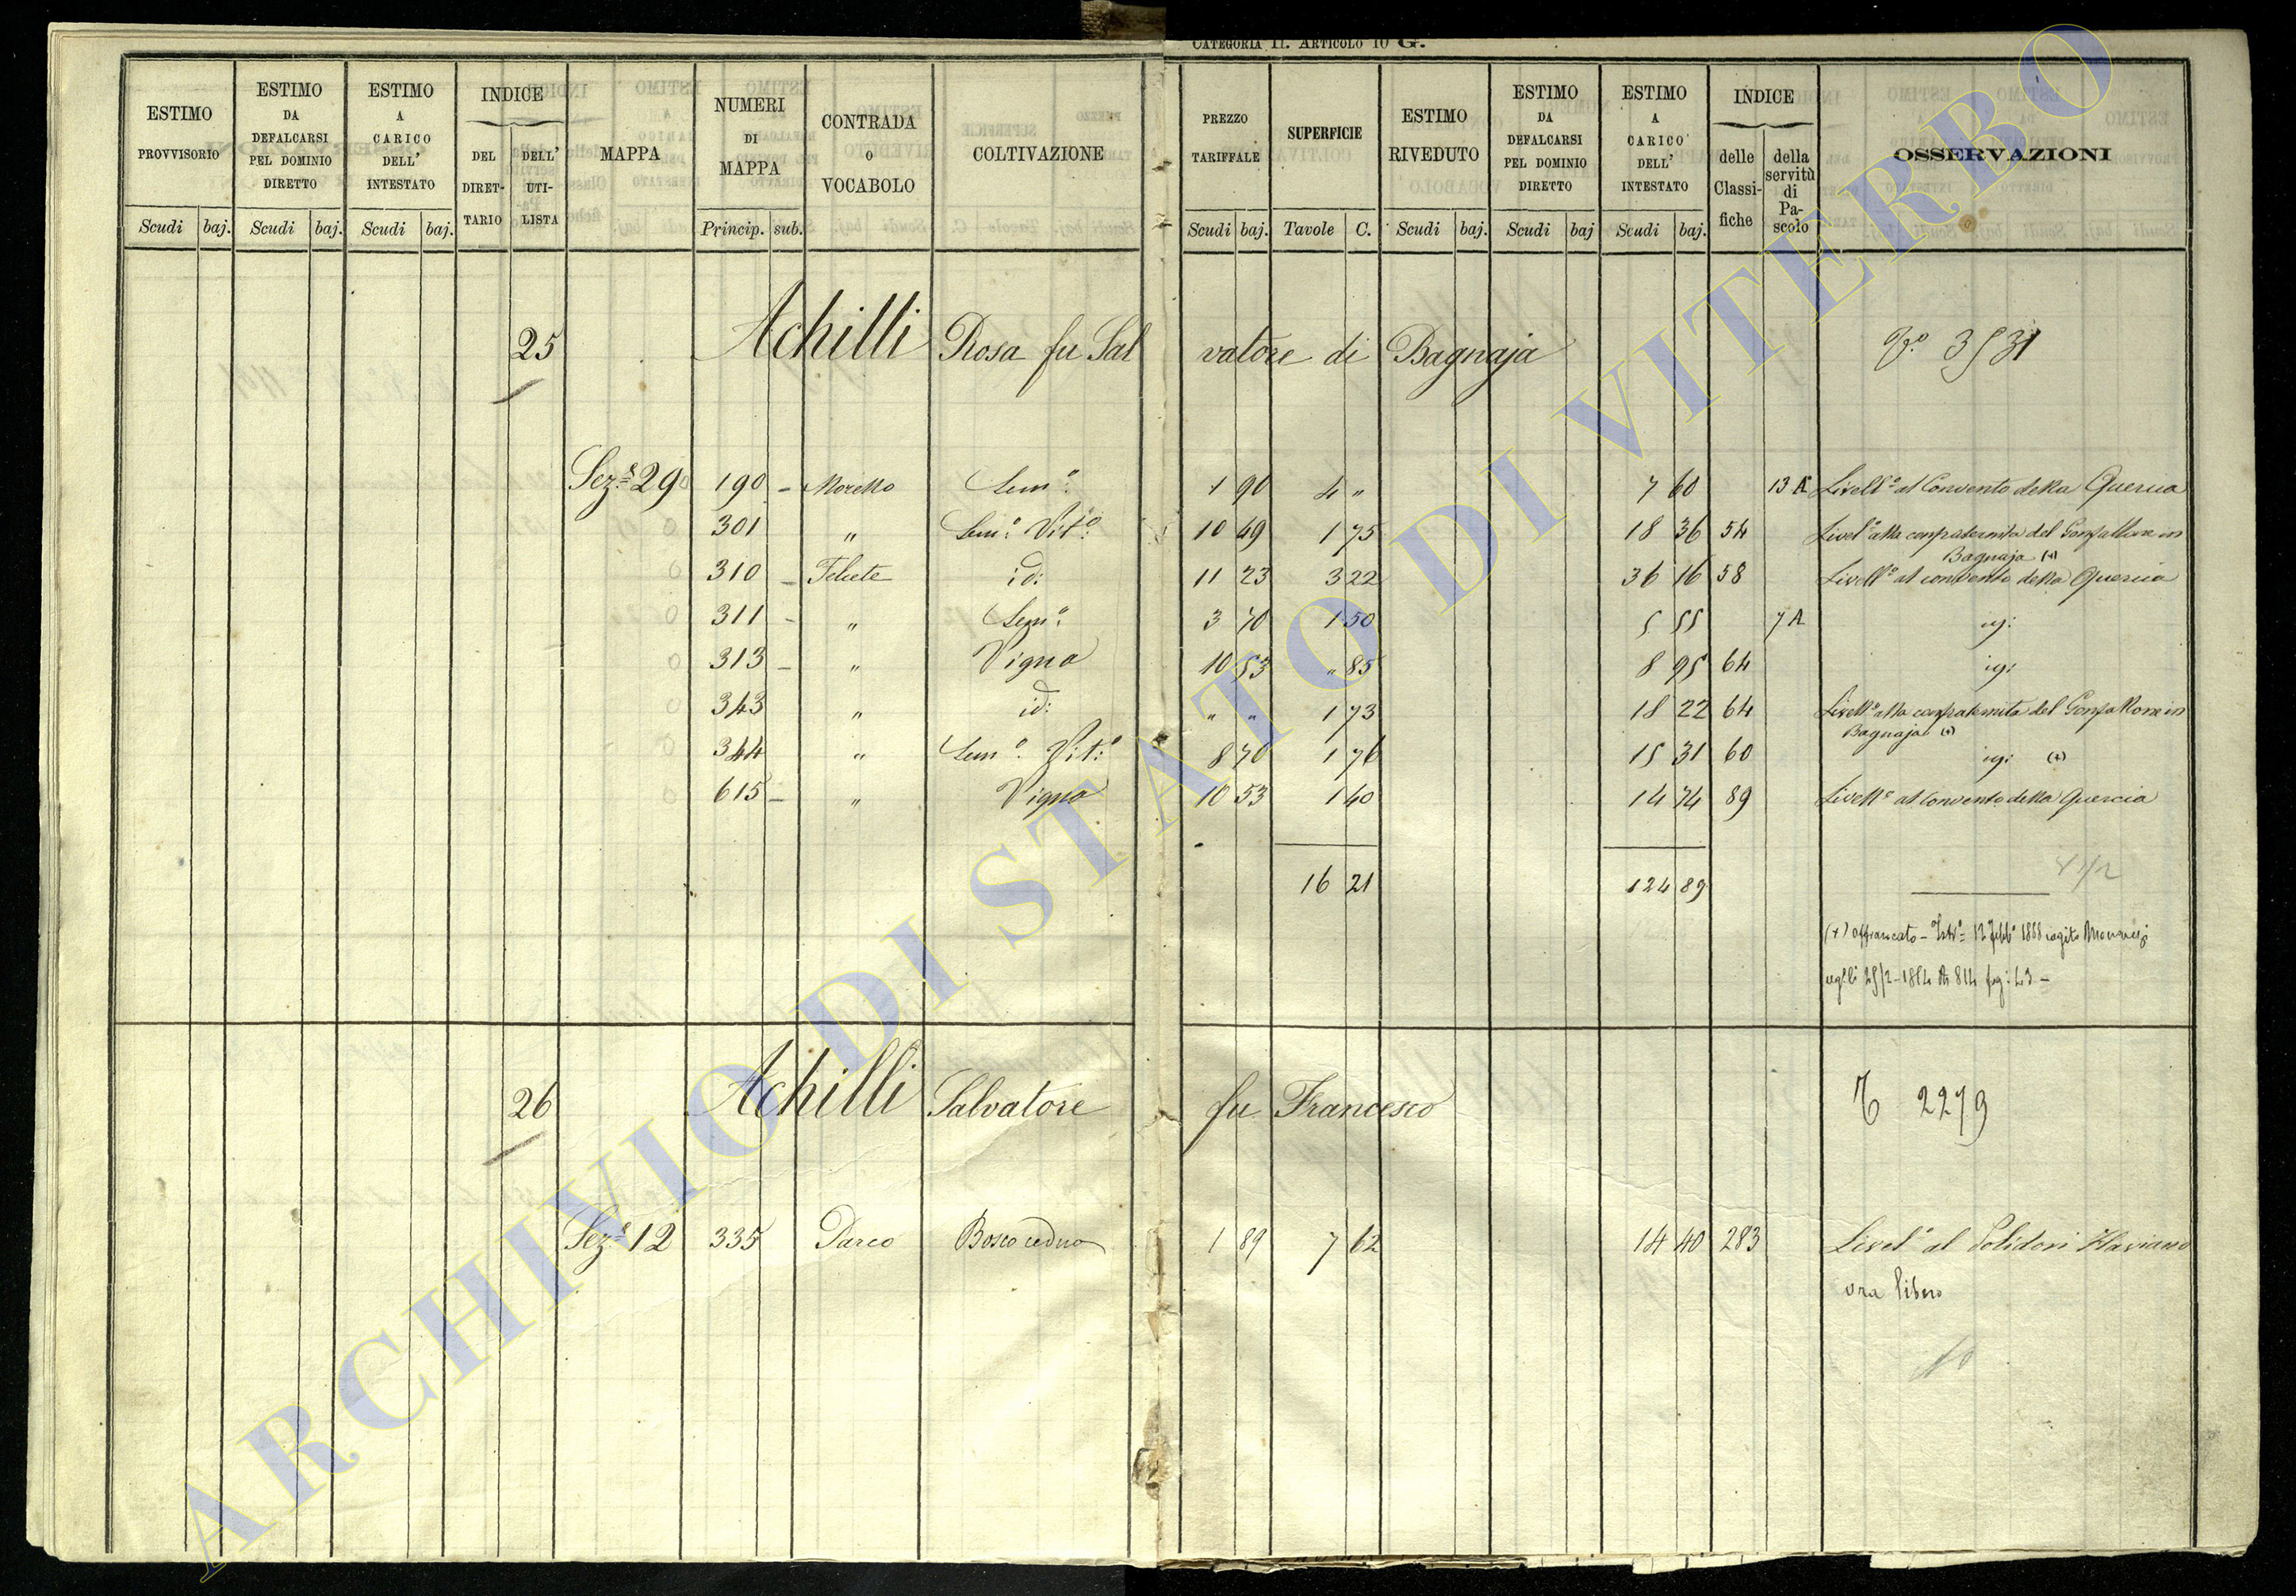 CATEGORIA II. ARTICOLO 10 G.
ESTIMO PROVVISORIO | ESTIMO DA DEFALCARSI PEL DOMINIO DIRETTO | ESTIMO A CARICO DELL' INTESTATO | INDICE DEL DIRETTARIO | DELL' UTILISTA | MAPPA | NUMERI DI MAPPA | CONTRADA O VOCABOLO | COLTIVAZIONE | PREZZO TARIFFALE | SUPERFICIE | ESTIMO RIVEDUTO | ESTIMO DA DEFALCARSI PEL DOMINIO DIRETTO | ESTIMO A CARICO DELL' INTESTATO | INDICE delle Classifiche | della servitù di Pascolo | OSSERVAZIONI
Scudi baj. | Scudi baj. | Scudi baj. | Princip. sub. | Scudi baj. | Tavole C. | Scudi baj. | Scudi baj | Scudi baj.
25 Achilli Rosa fu Salvatore di Bagnaja 3531
Sez.e 29 190 Moretto Sem.o 1 90 4 " 7 60 13 A Livell.o al Convento della Quercia
301 " Sem.o Vit.o 10 49 1 75 18 36 54 Livel.o alla confraternita del Gonfallone in
Bagnaja (x)
310 Felcete id: 11 23 3 22 36 16 58 Livell.o al convento della Quercia
311 " Sem.o 3 70 1 50 5 55 7 A
313 " Vigna 10 53 " 85 8 95 64
343 " id: " " 1 73 18 22 64 Livell.o alla confraternita del Gonfallone in
Bagnaja (x)
344 " Sem.o Vit.o 8 70 1 76 15 31 60 (x)
615 " Vigna 10 53 1 40 14 74 89 Livell.o al Convento della Quercia
16 21 124 89
(x) affrancato
26 Achilli Salvatore fu Francesco 2279
Sez.e 12 335 Parco Bosco ceduo 1 89 7 62 14 40 283 Livel.o al Polidori Flaviano
ora libero
ARCHIVIO DI STATO DI VITERBO